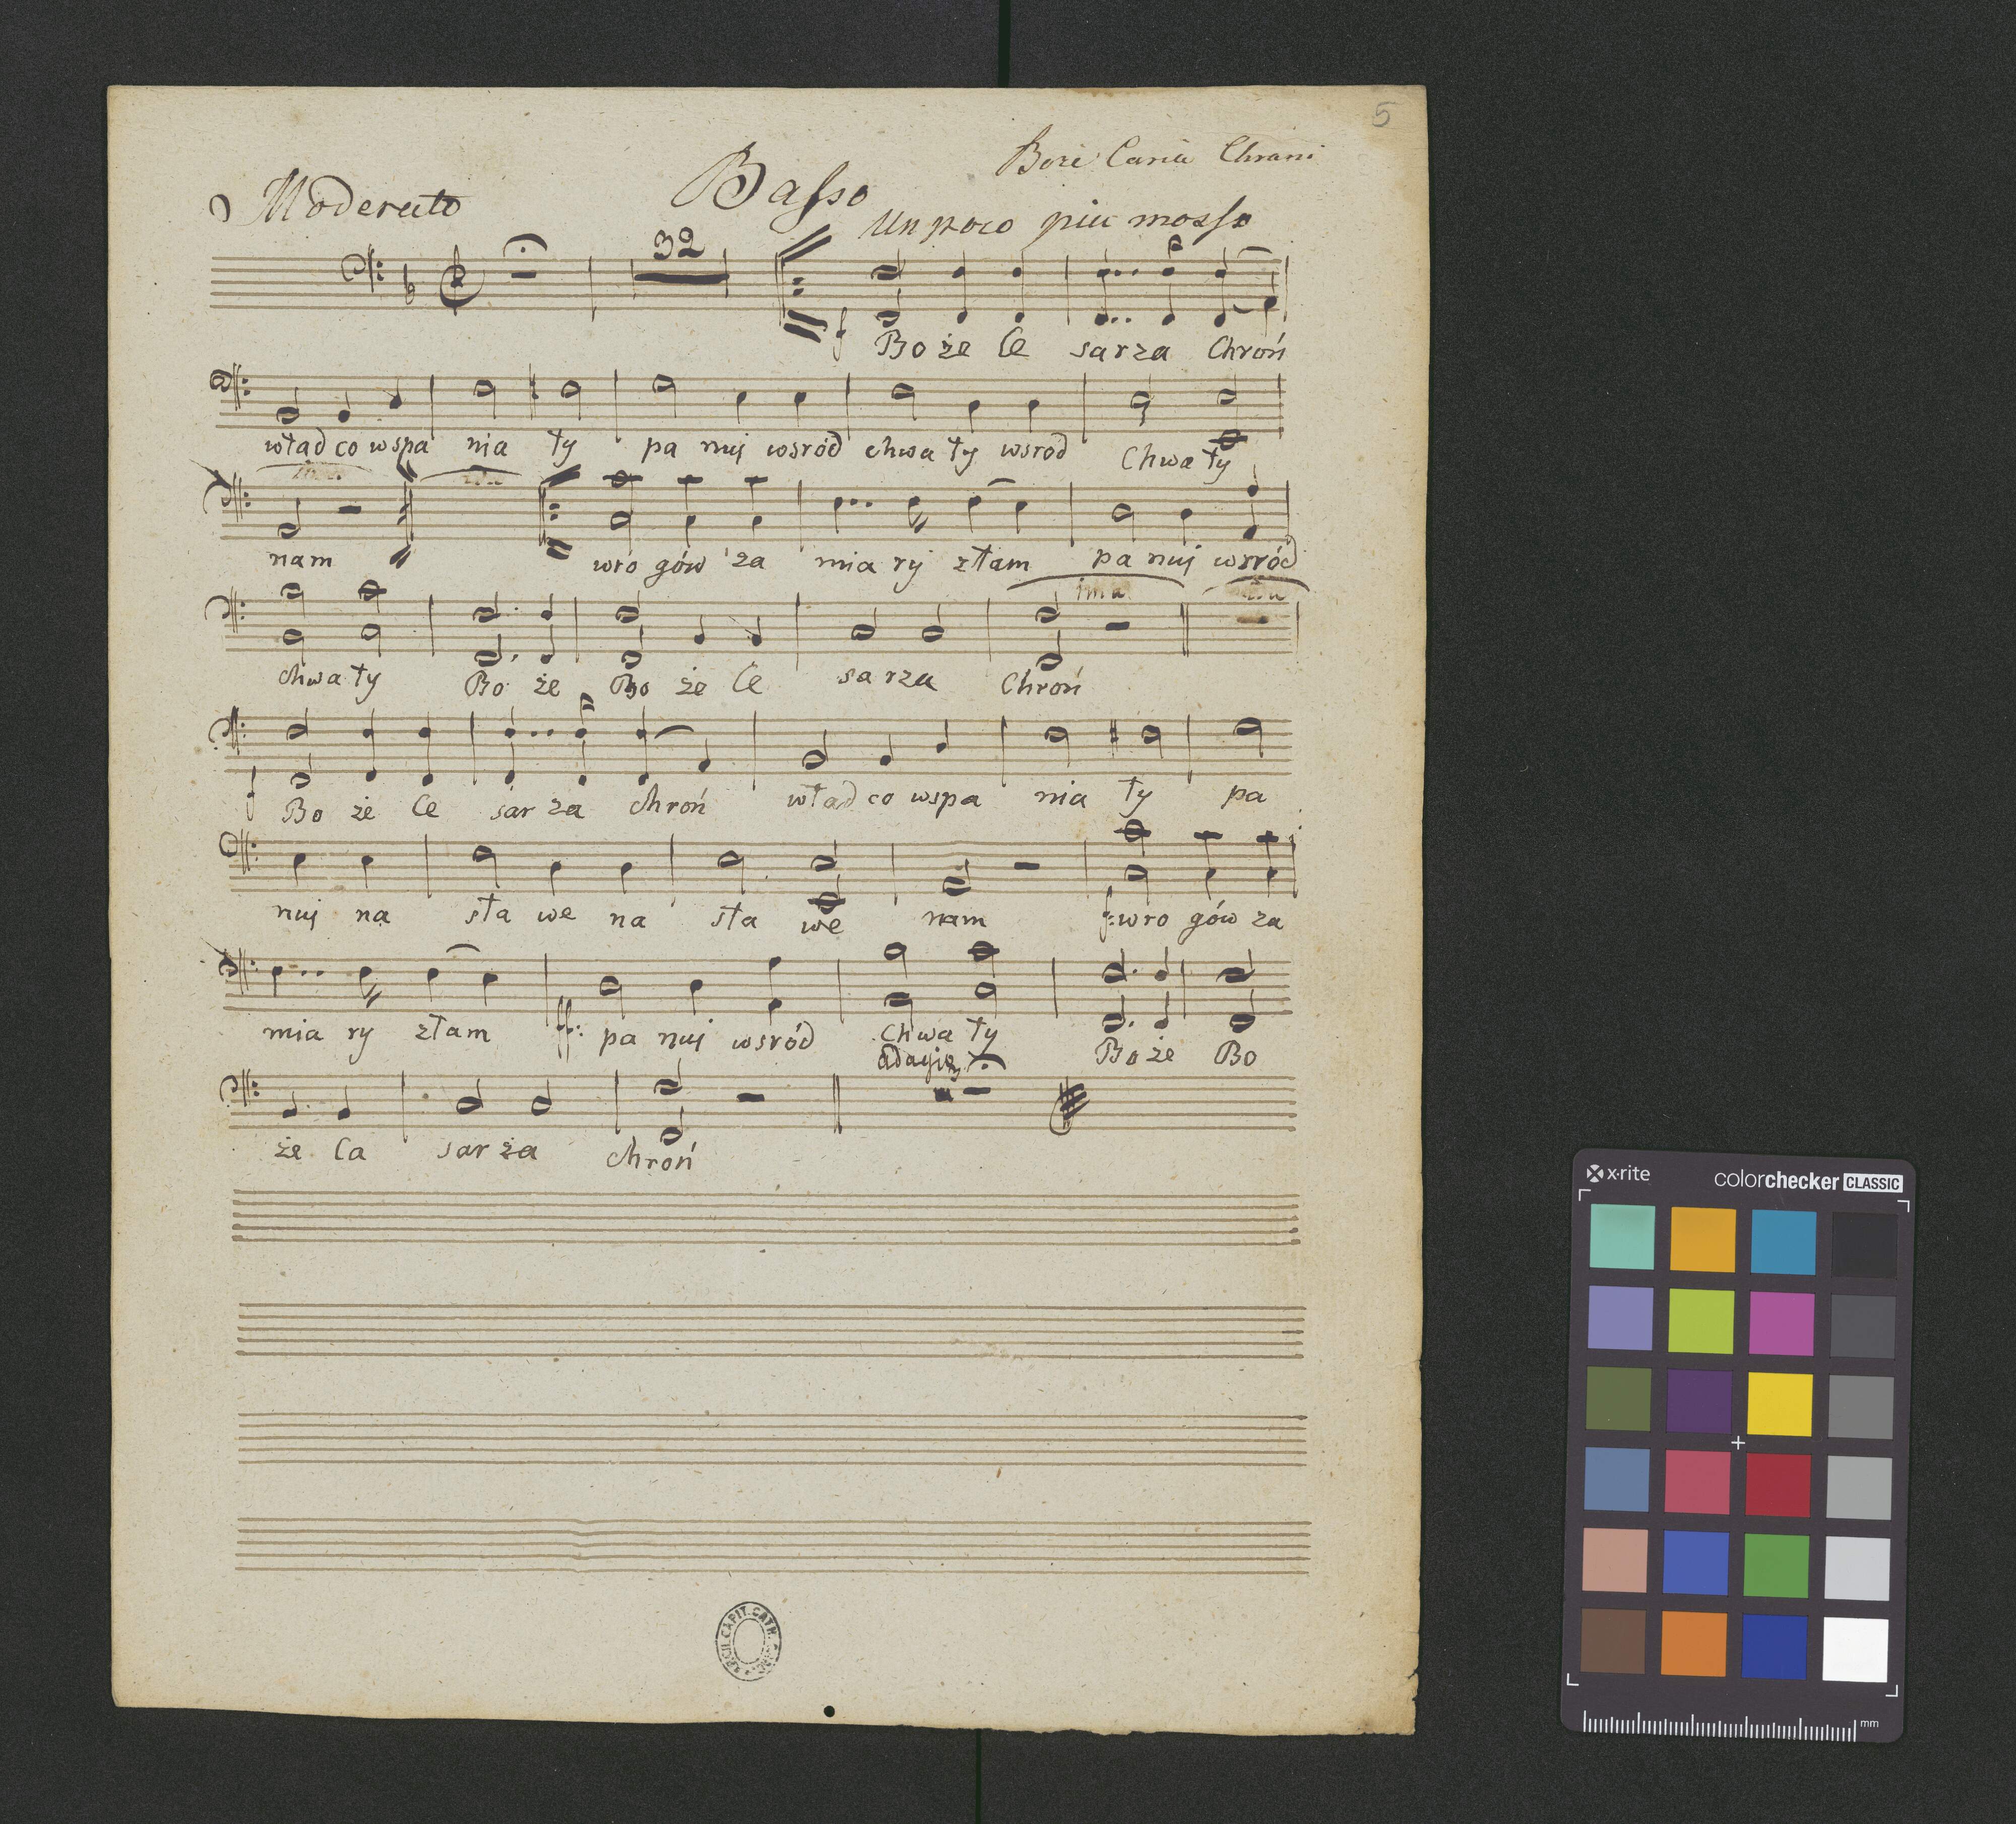 5
Boże Caria Chrani
Moderato
Basso
Un poco piu mosso
32
f Bo że Ce sarza Chroń
wład co wspa nia ły pa nuj wsród chwa ły wsrod Chwa ły
nam wro gów za mia ry złam pa nuj wsród
ima
chwa ły Bo że Bo że Ce sa rza Chroń
f Bo że Ce sar za chroń wład co wspa nia ły pa
nuj na sła we na sła we nam f: wro gów za
mia ry złam ff: pa nuj wsród chwa ły Bo że Bo
adagio
że Ca sar ża chroń
x·rite colorchecker CLASSIC
mm